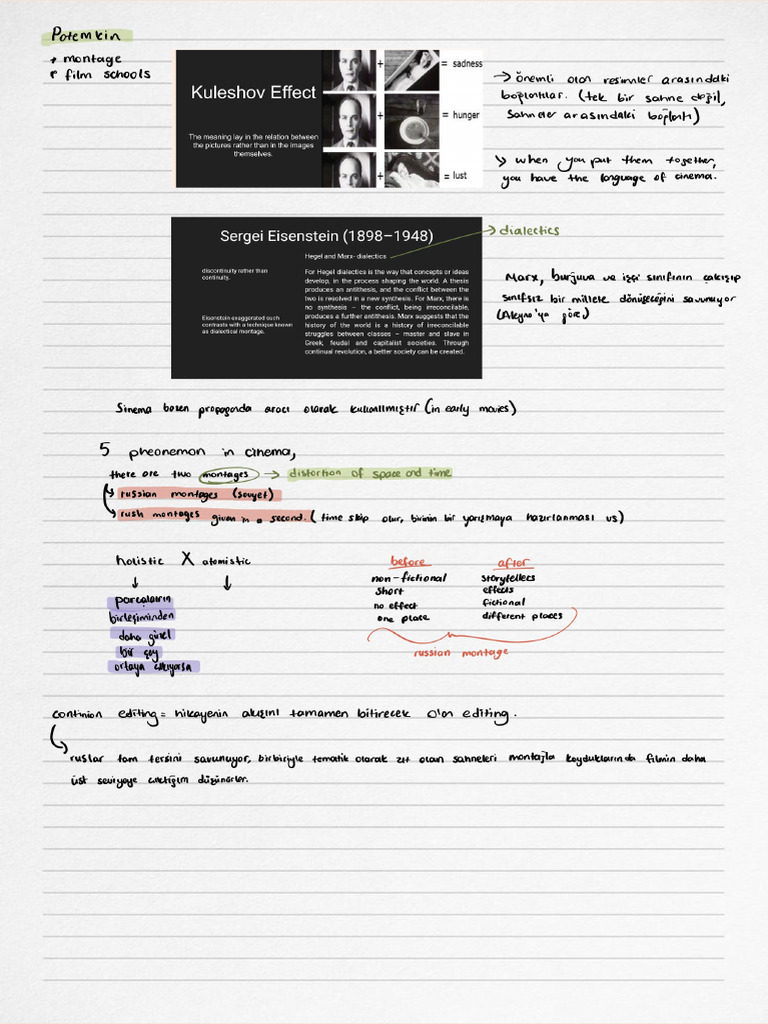 Potemkin
→ montage
→ film schools
Kuleshov Effect
The meaning lay in the relation between
the pictures rather than in the images
themselves.
+ = sadness
+ = hunger
+ = lust
→ önemli olan resimler arasındaki
bağlantılar. (tek bir sahne değil,
sahneler arasındaki bağlantı)
↘ when you put them together,
you have the language of cinema.
Sergei Eisenstein (1898–1948)
→ dialectics
Hegel and Marx- dialectics
discontinuity rather than
continuity.
Eisenstein exaggerated such
contrasts with a technique known
as dialectical montage.
For Hegel dialectics is the way that concepts or ideas
develop, in the process shaping the world. A thesis
produces an antithesis, and the conflict between the
two is resolved in a new synthesis. For Marx, there is
no synthesis – the conflict, being irreconcilable,
produces a further antithesis. Marx suggests that the
history of the world is a history of irreconcilable
struggles between classes – master and slave in
Greek, feudal and capitalist societies. Through
continual revolution, a better society can be created.
Marx, burjuva ve işçi sınıfının çakışıp
sınıfsız bir millete dönüşeceğini savunuyor
(göre)
Sinema bazen propaganda aracı olarak kullanılmıştır (in early movies)
5 pheonemon in cinema,
there are two montages → distortion of space and time
russian montages (soviet)
rush montages given in a second. (time skip olur, birinin bir yarışmaya hazırlanması vs)
holistic X atomistic
↓ ↓
parçaların
birleşiminden
daha güzel
bir şey
ortaya çıkıyorsa
before
non-fictional
short
no effect
one place
after
storytellers
effects
fictional
different places
russian montage
continion editing = hikayenin akışını tamamen bitirecek olan editing.
ruslar tam tersini savunuyor, birbiriyle tematik olarak zıt olan sahneleri montajla koyduklarında filmin daha
üst seviyeye çıktığını düşünürler.